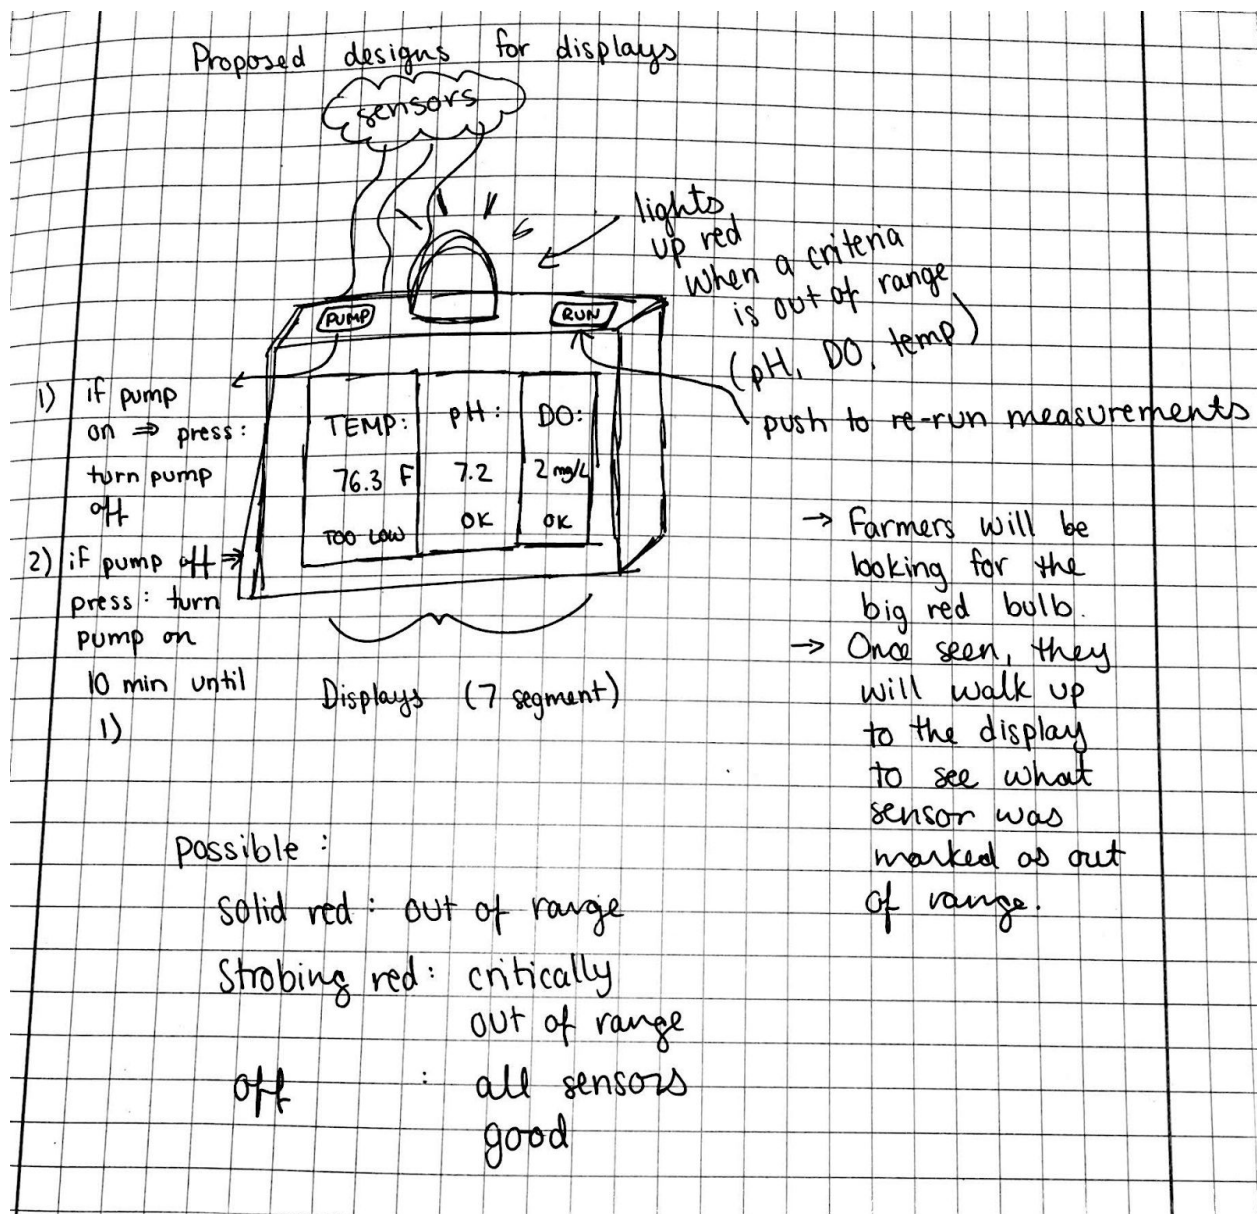 Proposed designs for displays
sensors
lights
up red
when a criteria
is out of range
(pH, DO, temp)
PUMP
RUN
push to re-run measurements
1) if pump
on ⇒ press:
turn pump
off
2) if pump off ⇒
press: turn
pump on
10 min until
1)
TEMP:
76.3 F
TOO LOW
pH:
7.2
OK
DO:
2 mg/L
OK
Displays (7 segment)
→ Farmers will be
looking for the
big red bulb.
→ Once seen, they
will walk up
to the display
to see what
sensor was
marked as out
of range.
possible:
solid red: out of range
Strobing red: critically
out of range
off : all sensors
good